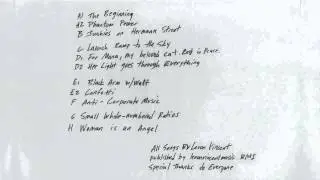 A1 The Beginning
A2 Phantom Power
B Junkies on Hermann Street
C Launch Ramp to the Sky
D1 For Mona, my beloved cat. Rest in Peace.
D2 Her Light goes Through Everything
E1 Black Arm w/Watt
E2 Confetti
F Anti-Corporate Music
G Small Whole-numbered Ratios
H Woman is an Angel
All Songs By Loren Vincent
published by BMI
Special Thanks to Everyone